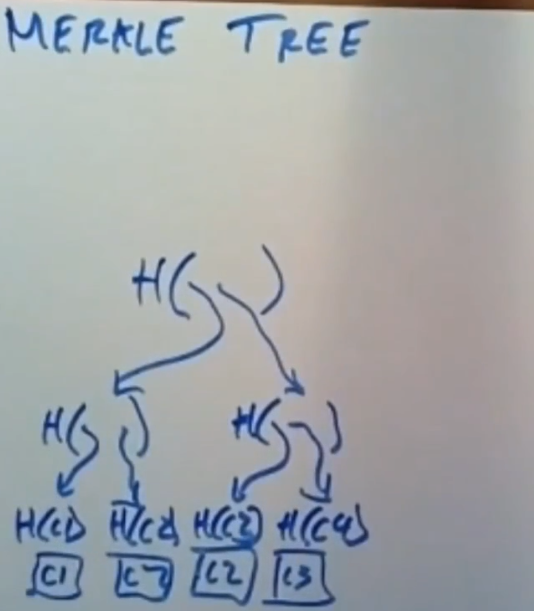 MERKLE TREE
H( )
H( ) H( )
H(C1) H(C2) H(C3) H(C4)
C1 C2 C3